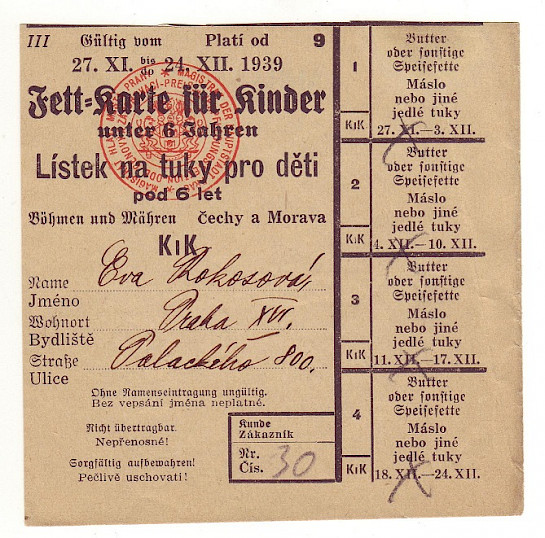 III Gültig vom Platí od 9
27. XI. bis do 24. XII. 1939
Fett=Karte für Kinder
unter 6 Jahren
Lístek na tuky pro děti
pod 6 let
Böhmen und Mähren Čechy a Morava
KiK
Name Eva Rokosová,
Jméno
Wohnort Praha XVI.
Bydliště
Straße Palackého 800.
Ulice
Ohne Namenseintragung ungültig.
Bez vepsání jména neplatné.
Nicht übertragbar.
Nepřenosné!
Sorgfältig aufbewahren!
Pečlivě uschovati!
Kunde
Zákazník
Nr.
Čís. 30
1
KiK
Butter
oder sonstige
Speisefette
Máslo
nebo jiné
jedlé tuky
27. XI.—3. XII.
2
KiK
Butter
oder sonstige
Speisefette
Máslo
nebo jiné
jedlé tuky
4. XII.—10. XII.
3
KiK
Butter
oder sonstige
Speisefette
Máslo
nebo jiné
jedlé tuky
11. XII.—17. XII.
4
KiK
Butter
oder sonstige
Speisefette
Máslo
nebo jiné
jedlé tuky
18. XII.—24. XII.